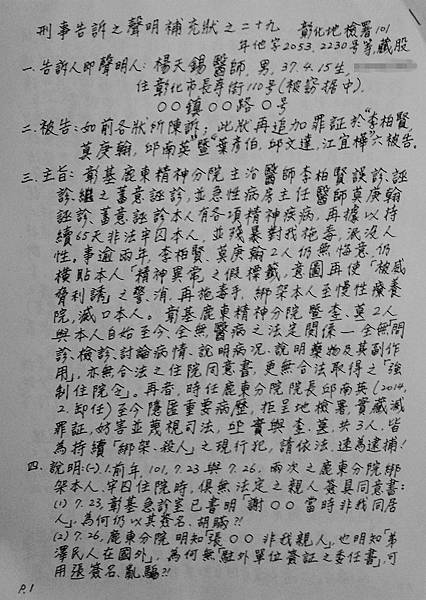 刑事告訴之聲明補充狀之二十九 彰化地檢署101
年他字2053.2230号等,藏股
一.告訴人即聲明人: 楊天錫醫師, 男, 37.4.15生,
住彰化市長壽街110号(被竊据中).
○○鎮○○路○号
二.被告: 如前各狀所陳訴; 此狀再追加罪証於"李柏賢,
莫庚翰, 邱南英"暨"葉彥伯, 邱文達, 江宜樺"六被告.
三.主旨: 彰基鹿東精神分院主治醫師李柏賢誤診、誣
診、繼之蓄意誣診, 並急性病房主任醫師莫庚翰
誣診、蓄意誣診本人有各項精神疾病, 再據以持
續65天非法牢囚本人, 並殘暴對我拖毒, 泯沒人
性. 事逾兩年, 李柏賢、莫庚翰2人仍無悔意, 仍
橫貼本人「精神異常」之假標籤, 意圖再使「被威
脅利誘」之警、消, 再拖毒手, 綁架本人至慢性療養
院, 滅口本人. 彰基鹿東精神分院暨李、莫2人
與本人自始至今、全無醫病之法定関係—全無「問
診、檢診、討論病情、說明病況、說明藥物及其副作
用」, 亦無合法之住院同意書, 更無合法取得之「強
制住院令」. 再者, 時任鹿東分院院長邱南英(2014,
2.卸任)至今隱匿重要病歷, 拒呈地檢署, 實藏滅
罪証, 妨害並蔑視司法, 邱實與李、莫共3人, 皆
為持續「綁架、殺人」之現行犯, 請依法、速為逮捕!
四.說明:(一)1.前年101.7.23與7.26. 兩次之鹿東分院綁
架本人、牢囚住院時, 俱無法定之親人簽具同意書:
(1) 7.23, 彰基急診室已書明「謝○○當時非我同居
人」, 為何仍以其簽名、胡騙??
(2) 7.26, 鹿東分院明知「張○○非我親人」, 也明知「弟
澤民人在國外」, 為何無「駐外單位簽証之委任書」, 可
用張簽名、亂騙?!
P.1